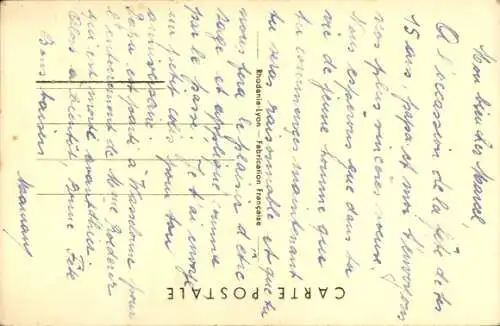 Mon bien cher Marcel,
À l'occasion de la fête de tes
15 ans papa et moi t'envoyons
nos plus sincères vœux.
Nous espérons que dans ta
vie de jeune homme que
tu commences maintenant
tu seras raisonnable et que tu
nous feras le plaisir d'être
sage et appliqué comme
par le passé. Je t'ai envoyé
un petit colis pour ton
anniversaire.
Papa est parti à pour
l'enterrement de Mme
qui est morte avant-hier.
Alors à bientôt, bonne fête
Bons baisers
Maman
Rhodania-Lyon — Fabrication Française
CARTE POSTALE